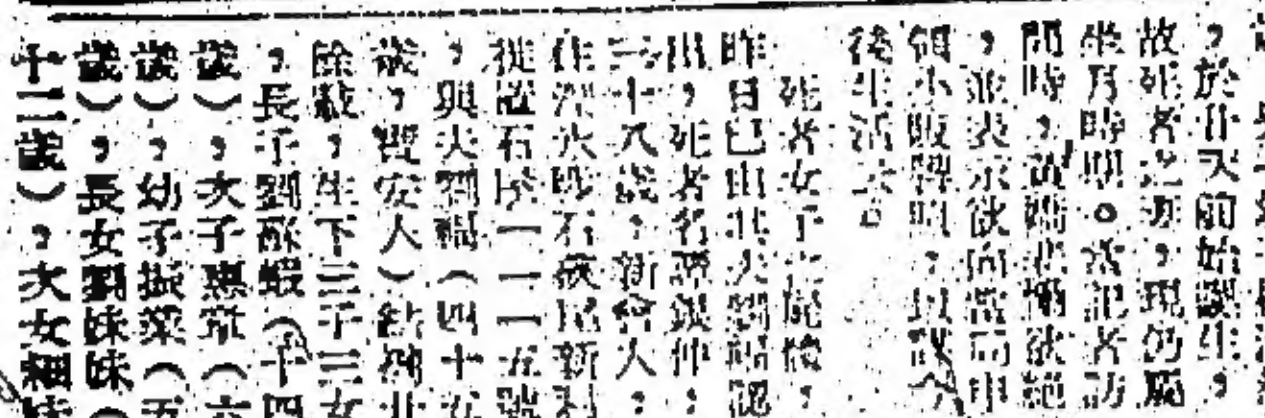 ，於廿天前始誕生，
故死者之亦，現仍屬
坐月時期。當記者訪
問時，劉婦悲慟欲絕
，並表示欲向當局申
領小販牌照，以謀今
後生活云。
死者女子屍體，
昨日已由其夫劉福認
出，死者名譚銀仲，
二十八歲，新會人，
住深水埗石硤尾新村
徙置石屋一一一五號
，與夫劉福（四十五
歲，寶安人）結褵北
除數，生下三子三女
，長子劉穌蝦（十四
歲），次子惠棠（六
歲），幼子振棠（五
歲），長女劉妹妹（
十二歲），次女細妹